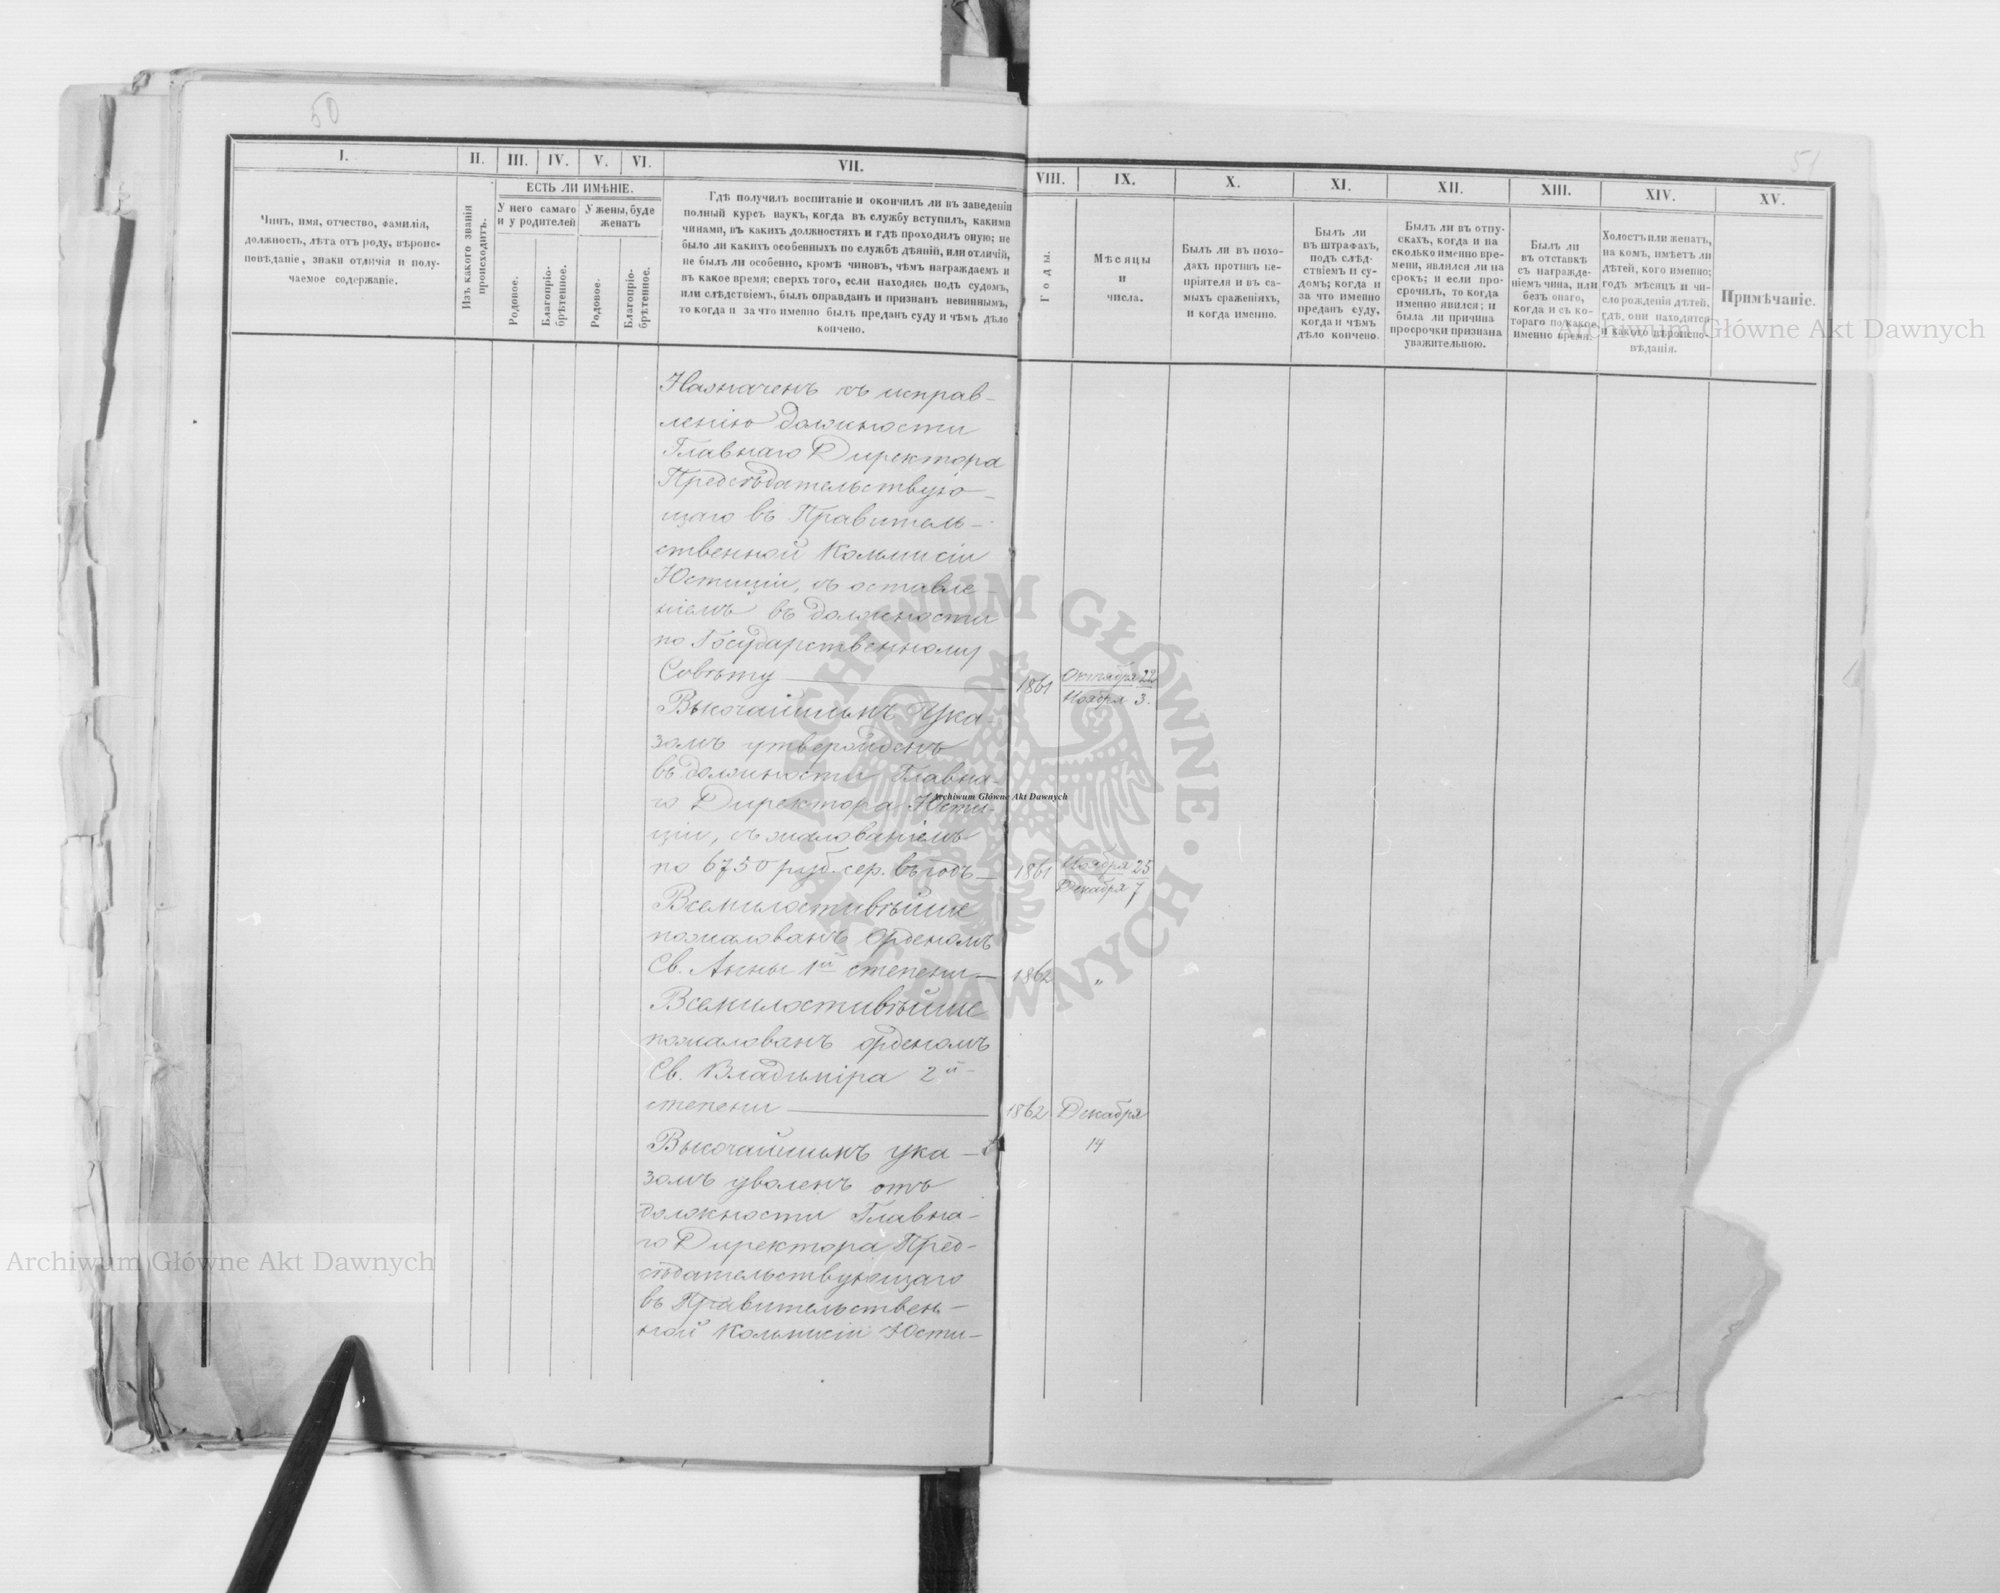 50
51
I.
II.
III.
IV.
V.
VI.
VII.
VIII.
IX.
X.
XI.
XII.
XIII.
XIV.
XV.
Чинъ, имя, отчество, фамилія,
должность, лѣта отъ роду, вѣроис-
повѣданіе, знаки отличія и полу-
чаемое содержаніе.
Изъ какого званія
происходитъ.
ЕСТЬ ЛИ ИМѢНІЕ.
У него самаго
и у родителей
У жены, буде
женатъ
Родовое.
Благопріо-
брѣтенное.
Родовое.
Благопріо-
брѣтенное.
Гдѣ получилъ воспитаніе и окончилъ ли въ заведеніи
полный курсъ наукъ, когда въ службу вступилъ, какими
чинами, въ какихъ должностяхъ и гдѣ проходилъ оную; не
было ли какихъ особенныхъ по службѣ дѣяній, или отличій,
не былъ ли особенно, кромѣ чиновъ, чѣмъ награждаемъ и
въ какое время; сверхъ того, если находясь подъ судомъ,
или слѣдствіемъ, былъ оправданъ и признанъ невиннымъ,
то когда и за что именно былъ преданъ суду и чѣмъ дѣло
кончено.
Годы.
Мѣсяцы
и
числа.
Былъ ли въ похо-
дахъ противъ не-
пріятеля и въ са-
мыхъ сраженіяхъ,
и когда именно.
Былъ ли
въ штрафахъ,
подъ слѣд-
ствіемъ и су-
домъ; когда и
за что именно
преданъ суду,
когда и чѣмъ
дѣло кончено.
Былъ ли въ отпу-
скахъ, когда и на
сколько именно вре-
мени, являлся ли на
срокъ; и если про-
срочилъ, то когда
именно явился; и
была ли причина
просрочки признана
уважительною.
Былъ ли
въ отставкѣ
съ награжде-
ніемъ чина, или
безъ онаго,
когда и съ ко-
тораго по какое
именно время.
Холостъ или женатъ,
на комъ, имѣетъ ли
дѣтей, кого именно;
годъ мѣсяцъ и чи-
сло рожденія дѣтей,
гдѣ они находятся
и какого вѣроиспо-
вѣданія.
Примѣчаніе.
Назначенъ къ исправ-
ленію должности
Главнаго Директора
Предсѣдательствую-
щаго въ Правитель-
ственной Коммисіи
Юстиціи, съ оставле-
ніемъ въ должности
по Государственному
Совѣту 1861 Октября 22
Ноября 3.
Высочайшимъ Ука-
зомъ утвержденъ
въ должности Главна-
го Директора Юсти-
ціи, съ жалованіемъ
по 6750 руб. сер. въ годъ 1861 Ноября 25
Декабря 7
Всемилостивѣйше
пожалованъ орденомъ
Св. Анны 1й степени 1862 "
Всемилостивѣйше
пожалованъ орденомъ
Св. Владиміра 2й
степени 1862 Декабря
14
Высочайшимъ ука-
зомъ уволенъ отъ
должности Главна-
го Директора Пред-
сѣдательствующаго
въ Правительствен-
ной Коммисіи Юсти-
Archiwum Główne Akt Dawnych
Archiwum Główne Akt Dawnych
Archiwum Główne Akt Dawnych
ARCHIWUM GŁÓWNE · AKT DAWNYCH ·